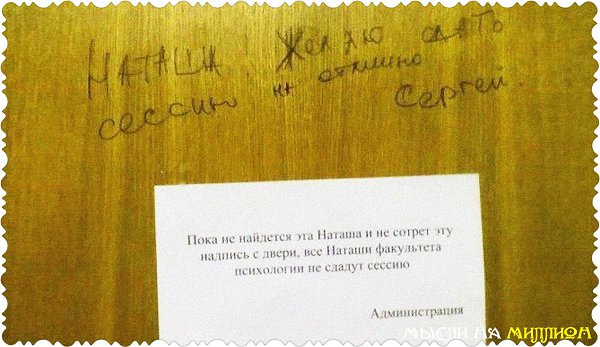 НАТАША Желаю сдать
сессию на отлично
Сергей.
Пока не найдется эта Наташа и не сотрет эту
надпись с двери, все Наташи факультета
психологии не сдадут сессию
Администрация
МЫСЛИ НА МИЛЛИОН